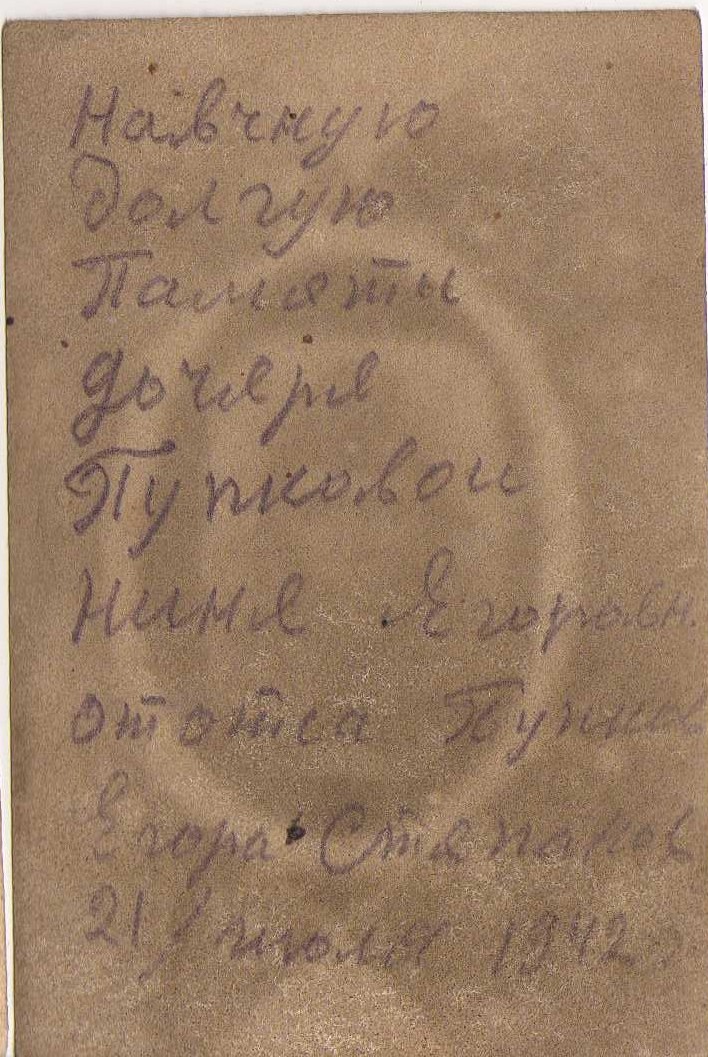 Навчную
долгую
Памяты
дочяря
Пупковои
Ниня Ягоровн.
ототса Пупков
Егора Стяпанов
21/июля 1942 г